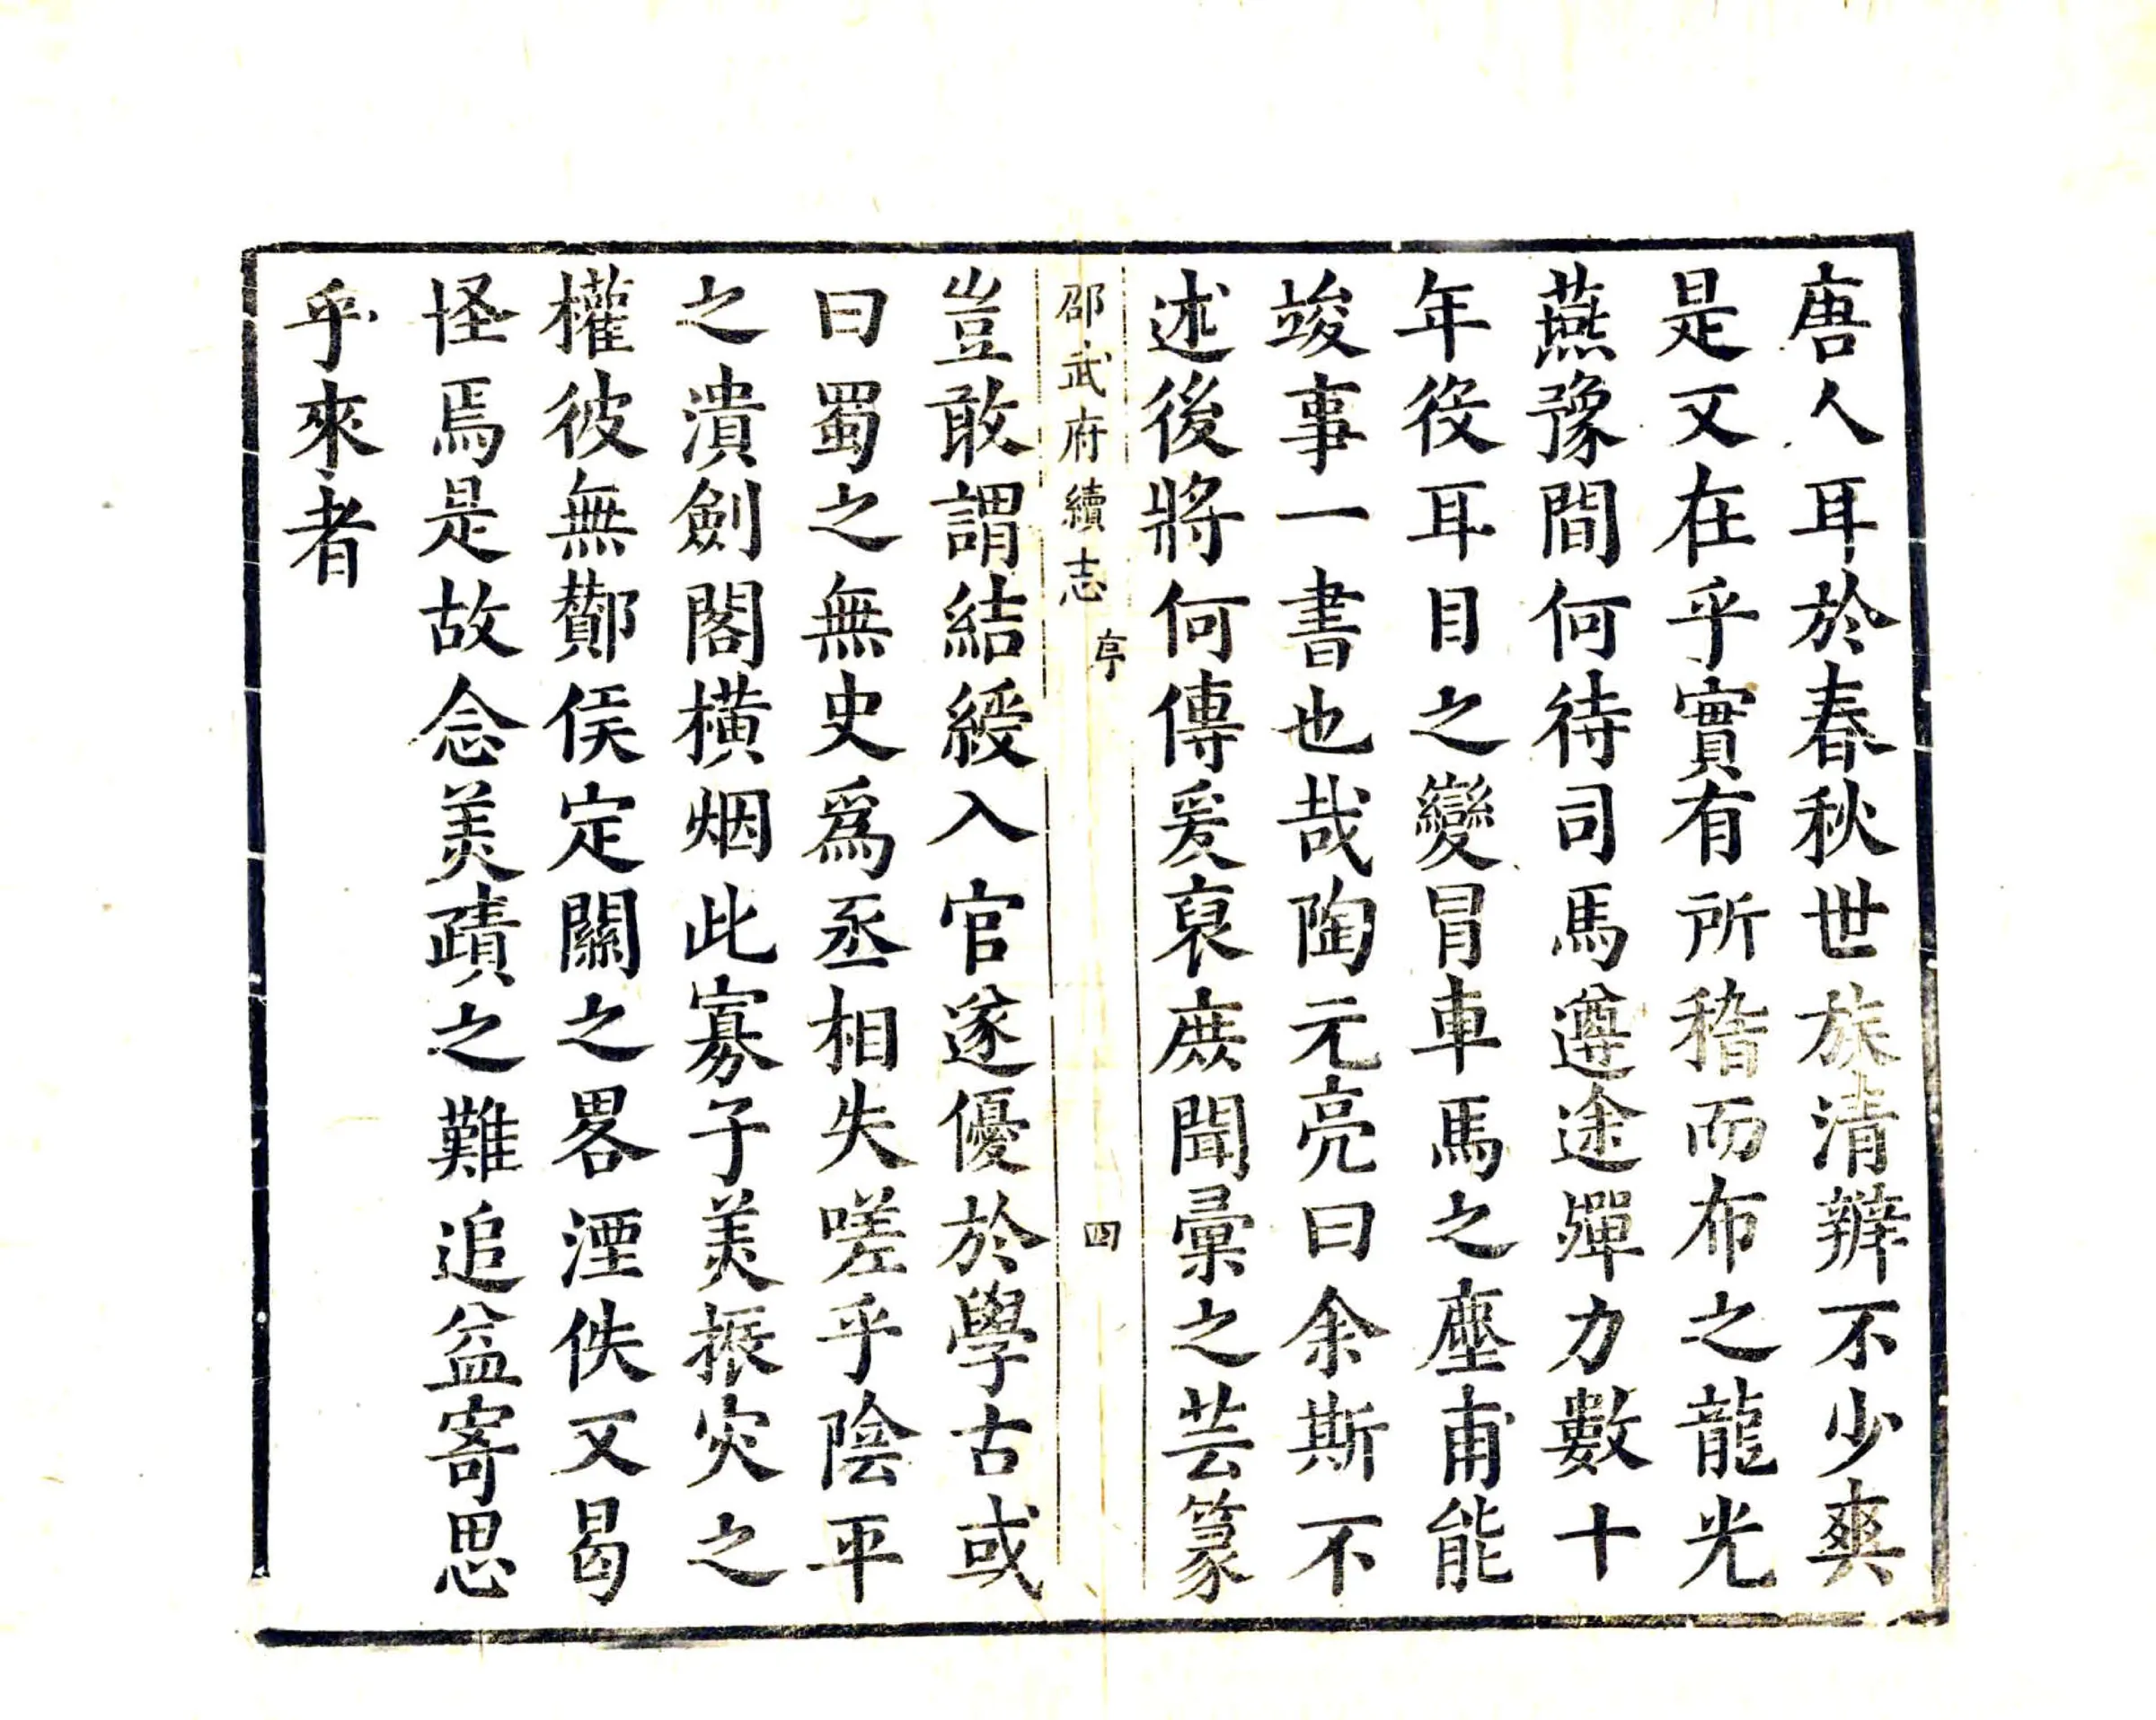 唐人耳於春秋世族清辨不少爽
是又在乎實有所稽而布之龍光
燕豫間何待司馬遵途殫力數十
年役耳目之變冒車馬之塵甫能
竣事一書也哉陶元亮曰余斯不
述後將何傳爰裒庶聞彚之芸篆
邵武府續志
亭
四
豈敢謂結綬入官遂優於學古或
曰蜀之無史爲丞相失嗟乎陰平
之潰劍閣橫烟此寡子美振灾之
權彼無酇侯定關之畧湮佚又曷
怪焉是故念美蹟之難追益寄思
乎來者